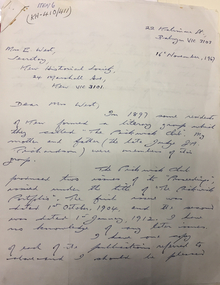 22 Melrose St.
Balwyn Vic 3103.
16 November, 1967
Mrs E. West,
Secretary
Kew Historical Society,
24 Marshall Ave,
Kew Vic 3101.
Dear Mrs West,
In 1897 some residents
of Kew formed a literary group which
they called "The Pickwick Club". My
mother and father (the late Judge J H
Dickenson) were members of the
group.
The Pickwick Club
produced two issues of its "Proceedings"
issued under the title of "The Pickwick
Portfolio". The first issue was
dated 1st October, 1904, and the second
was dated 1st January, 1912. I have
no knowledge of any later issues
I have one copy
of each of the publications referred to
and I should be pleased